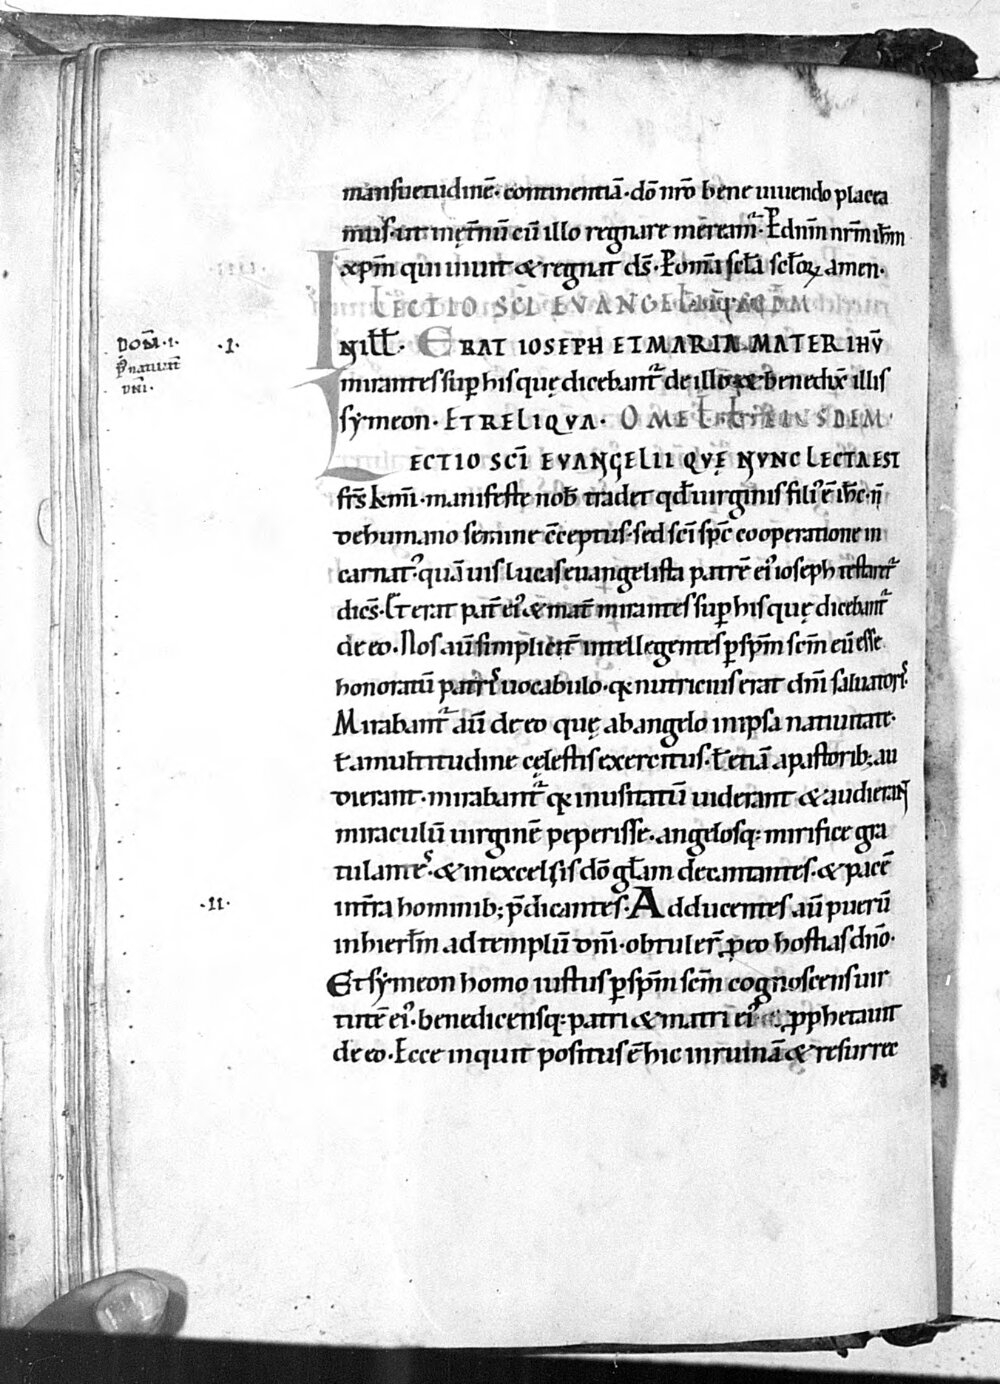 mansuetudinē· continentiā· dō nr̄o bene uiuendo placea
mus· ut inęt̄nū cū illo regnare mēream̄· P dn̄m nr̄m ih̄m
xp̄m qui uiuit & regnat ds̄· P om̄a sc̄la sc̄loꝝ amen·
LECTIO SC̄I EVANGELII
DOM̄·I·
p̄ natiuit̄
dn̄i·
·I·
N ill̄· ERAT IOSEPH ET MARIA MATER IHV̄
mirantes sup his quę dicebant᷑ de illo & benedix̄ illis
sẏmeon· ET RELIQVA· OMEL EIVSDEM·
LECTIO SC̄I EVANGELII QVĘ NVNC LECTA EST
fr̄s km̄i· manifeste nob̄ tradet qd̄ uirginis fili᾽ ē ih̄c· n̄
de humano semine c̄ceptus· sed sc̄i sp̄c cooperatione in
carnat᾽· quā uis lucas euangelista patrē ei᾽ ioseph testant᷑
dicēs· Et erat pat̄ ei᾽ & mat̄ mirantes sup his quę dicebant᷑
de eo. Nos aū simplicit̄ intellegentes ꝑ sp̄m sc̄m eū esse
honoratū patris uocabulo· qa nutricius erat dn̄i saluatoris·
Mirabant᷑ aū de eo quę ab angelo in ipsa natiuitate·
ł a multitudine cęlestis exercitus· ł etiā a pastorib; au
dierant· mirabant᷑ qa inusitatū uiderant & audierant
miraculū uirginē peperisse· angelosq: mirifice gra
tulantes· & in excelsis dō gl̄am decantantes· & pacē
·II·
in t̄ra hominib; p̄dicantes· Adducentes aū puerū
in hierl̄m ad templū dn̄i· obtuler̄ ꝓ eo hostias dn̄o·
Et sẏmeon homo iustus ꝑ sp̄m sc̄m cognoscens uir
tutē ei᾽· benedicensq: patri & matri ei᾽ ꝓphetauit
de eo· Ecce inquit positus ē hic in ruinā & resurrec